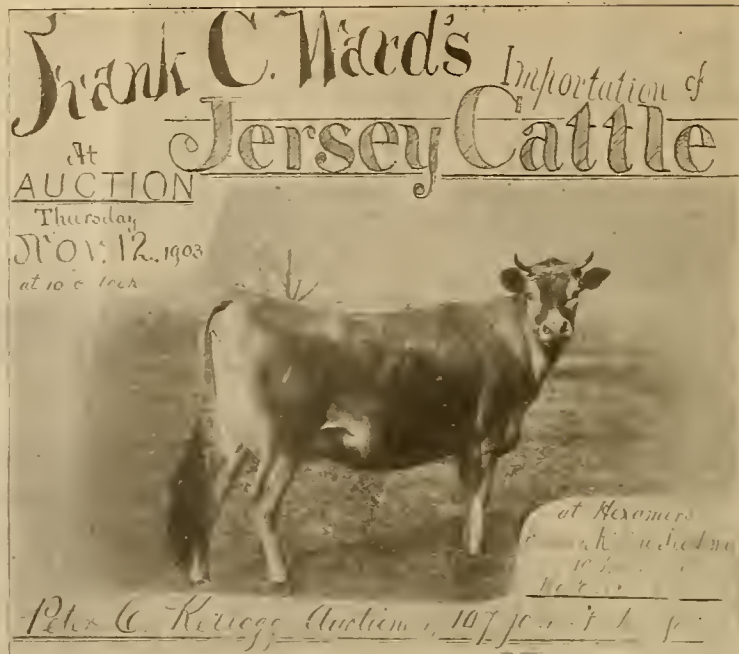 Frank C. Ward's
Importation of
Jersey Cattle
At
AUCTION
Thursday
Nov. 12, 1903
at 10 o'clock
at Hexamers
Peter C. Kellogg Auctioneer, 107